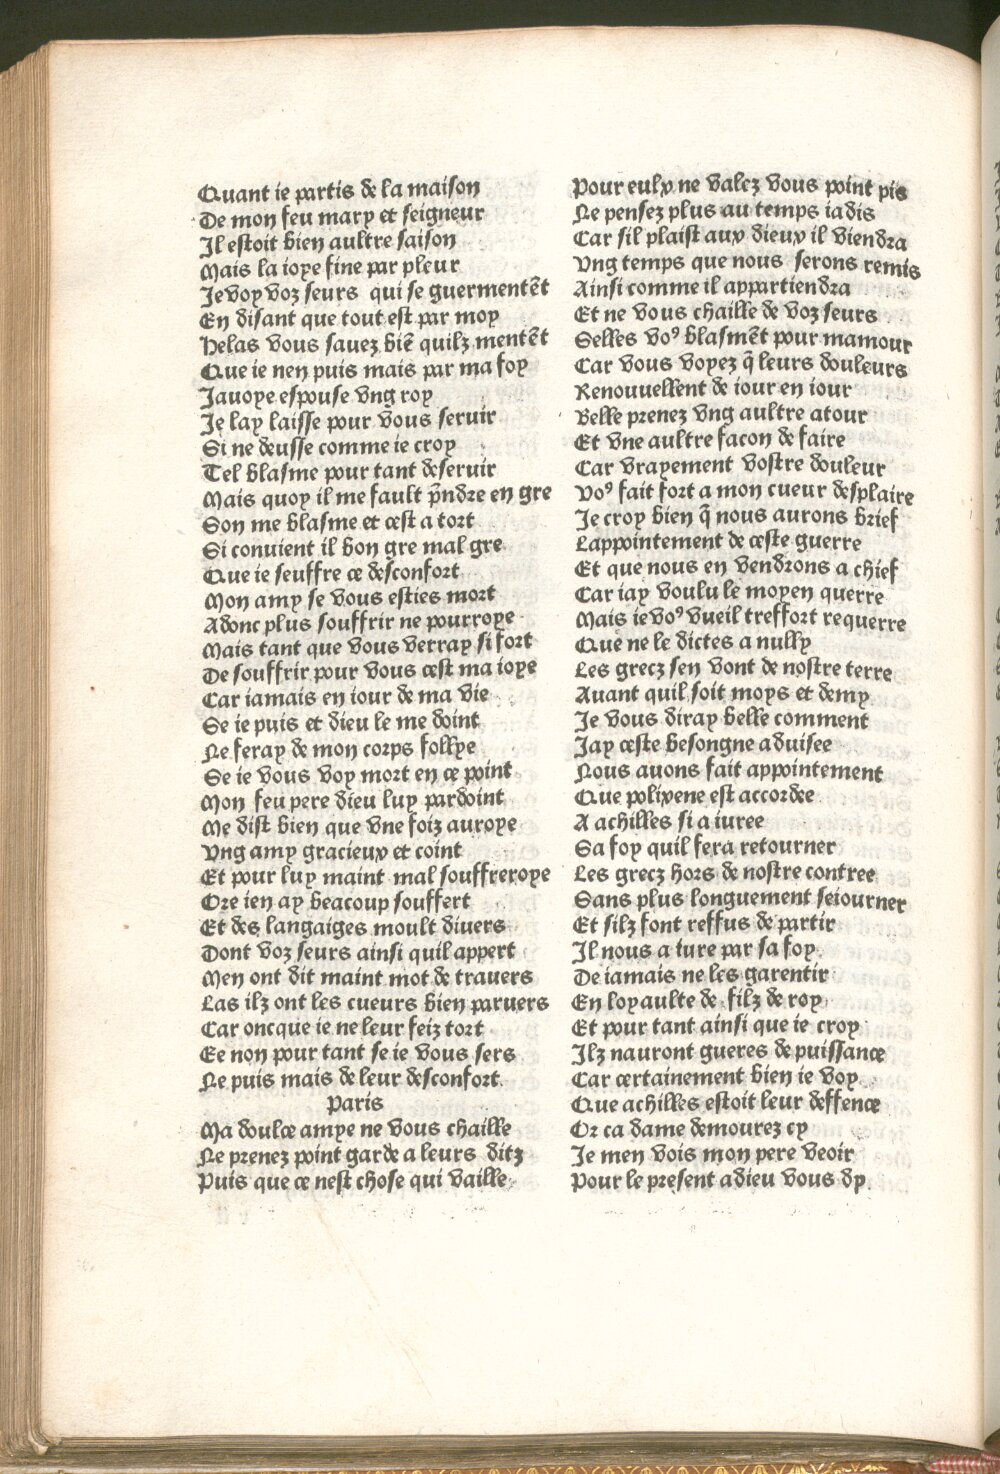 Quant ie partis de la maison
De mon feu mary et seigneur
Il estoit bien aultre saison
Mais la ioye fine par pleur
Ie voy voz seurs qui se guermentēt
En disant que tout est par moy
Helas vous sauez biē quilz mentēt
Que ie nen puis mais par ma foy
Iauoye espouse vng roy
Ie lay laisse pour vous seruir
Si ne deusse comme ie croy
Tel blasme pour tant deseruir
Mais quoy il me fault p̄ndre en gre
Son me blasme et cest a tort
Si conuient il bon gre mal gre
Que ie seuffre ce desconfort
Mon amy se vous esties mort
Adonc plus souffrir ne pourroye
Mais tant que vous verray si fort
De souffrir pour vous cest ma ioye
Car iamais en iour de ma vie
Se ie puis et dieu le me doint
Ne feray de mon corps follye
Se ie vous voy mort en ce point
Mon feu pere dieu luy pardoint
Me dist bien que vne foiz auroye
Vng amy gracieux et coint
Et pour luy maint mal souffreroye
Ore ien ay beacoup souffert
Et des langaiges moult diuers
Dont voz seurs ainsi quil appert
Men ont dit maint mot de trauers
Las ilz ont les cueurs bien paruers
Car oncque ie ne leur feiz tort
Ee non pour tant se ie vous sers
Ne puis mais de leur desconfort
Paris
Ma doulce amye ne vous chaille
Ne prenez point garde a leurs ditz
Puis que ce nest chose qui vaille
Pour eulx ne valez vous point pis
Ne pensez plus au temps iadis
Car sil plaist aux dieux il viendra
Vng temps que nous serons remis
Ainsi comme il appartiendra
Et ne vous chaille de voz seurs
Selles voꝰ blasmēt pour mamour
Car vous voyez q̄ leurs douleurs
Renouuellent de iour en iour
Belle prenez vng aultre atour
Et vne aultre facon de faire
Car vrayement vostre douleur
Voꝰ fait fort a mon cueur desplaire
Ie croy bien q̄ nous aurons brief
Lappointement de ceste guerre
Et que nous en vendrons a chief
Car iay voulu le moyen querre
Mais ie voꝰ vueil tresfort requerre
Que ne le dictes a nully
Les grecz sen vont de nostre terre
Auant quil soit moys et demy
Ie vous diray belle comment
Iay ceste besongne aduisee
Nous auons fait appointement
Que polixene est accordee
A achilles si a iuree
Sa foy quil fera retourner
Les grecz hors de nostre contree
Sans plus longuement seiourner
Et silz font reffus de partir
Il nous a iure par sa foy
De iamais ne les garentir
En loyaulte de filz de roy
Et pour tant ainsi que ie croy
Ilz nauront gueres de puissance
Car certainement bien ie voy
Que achilles estoit leur deffence
Or ca dame demourez cy
Ie men vois mon pere veoir
Pour le present adieu vous dy